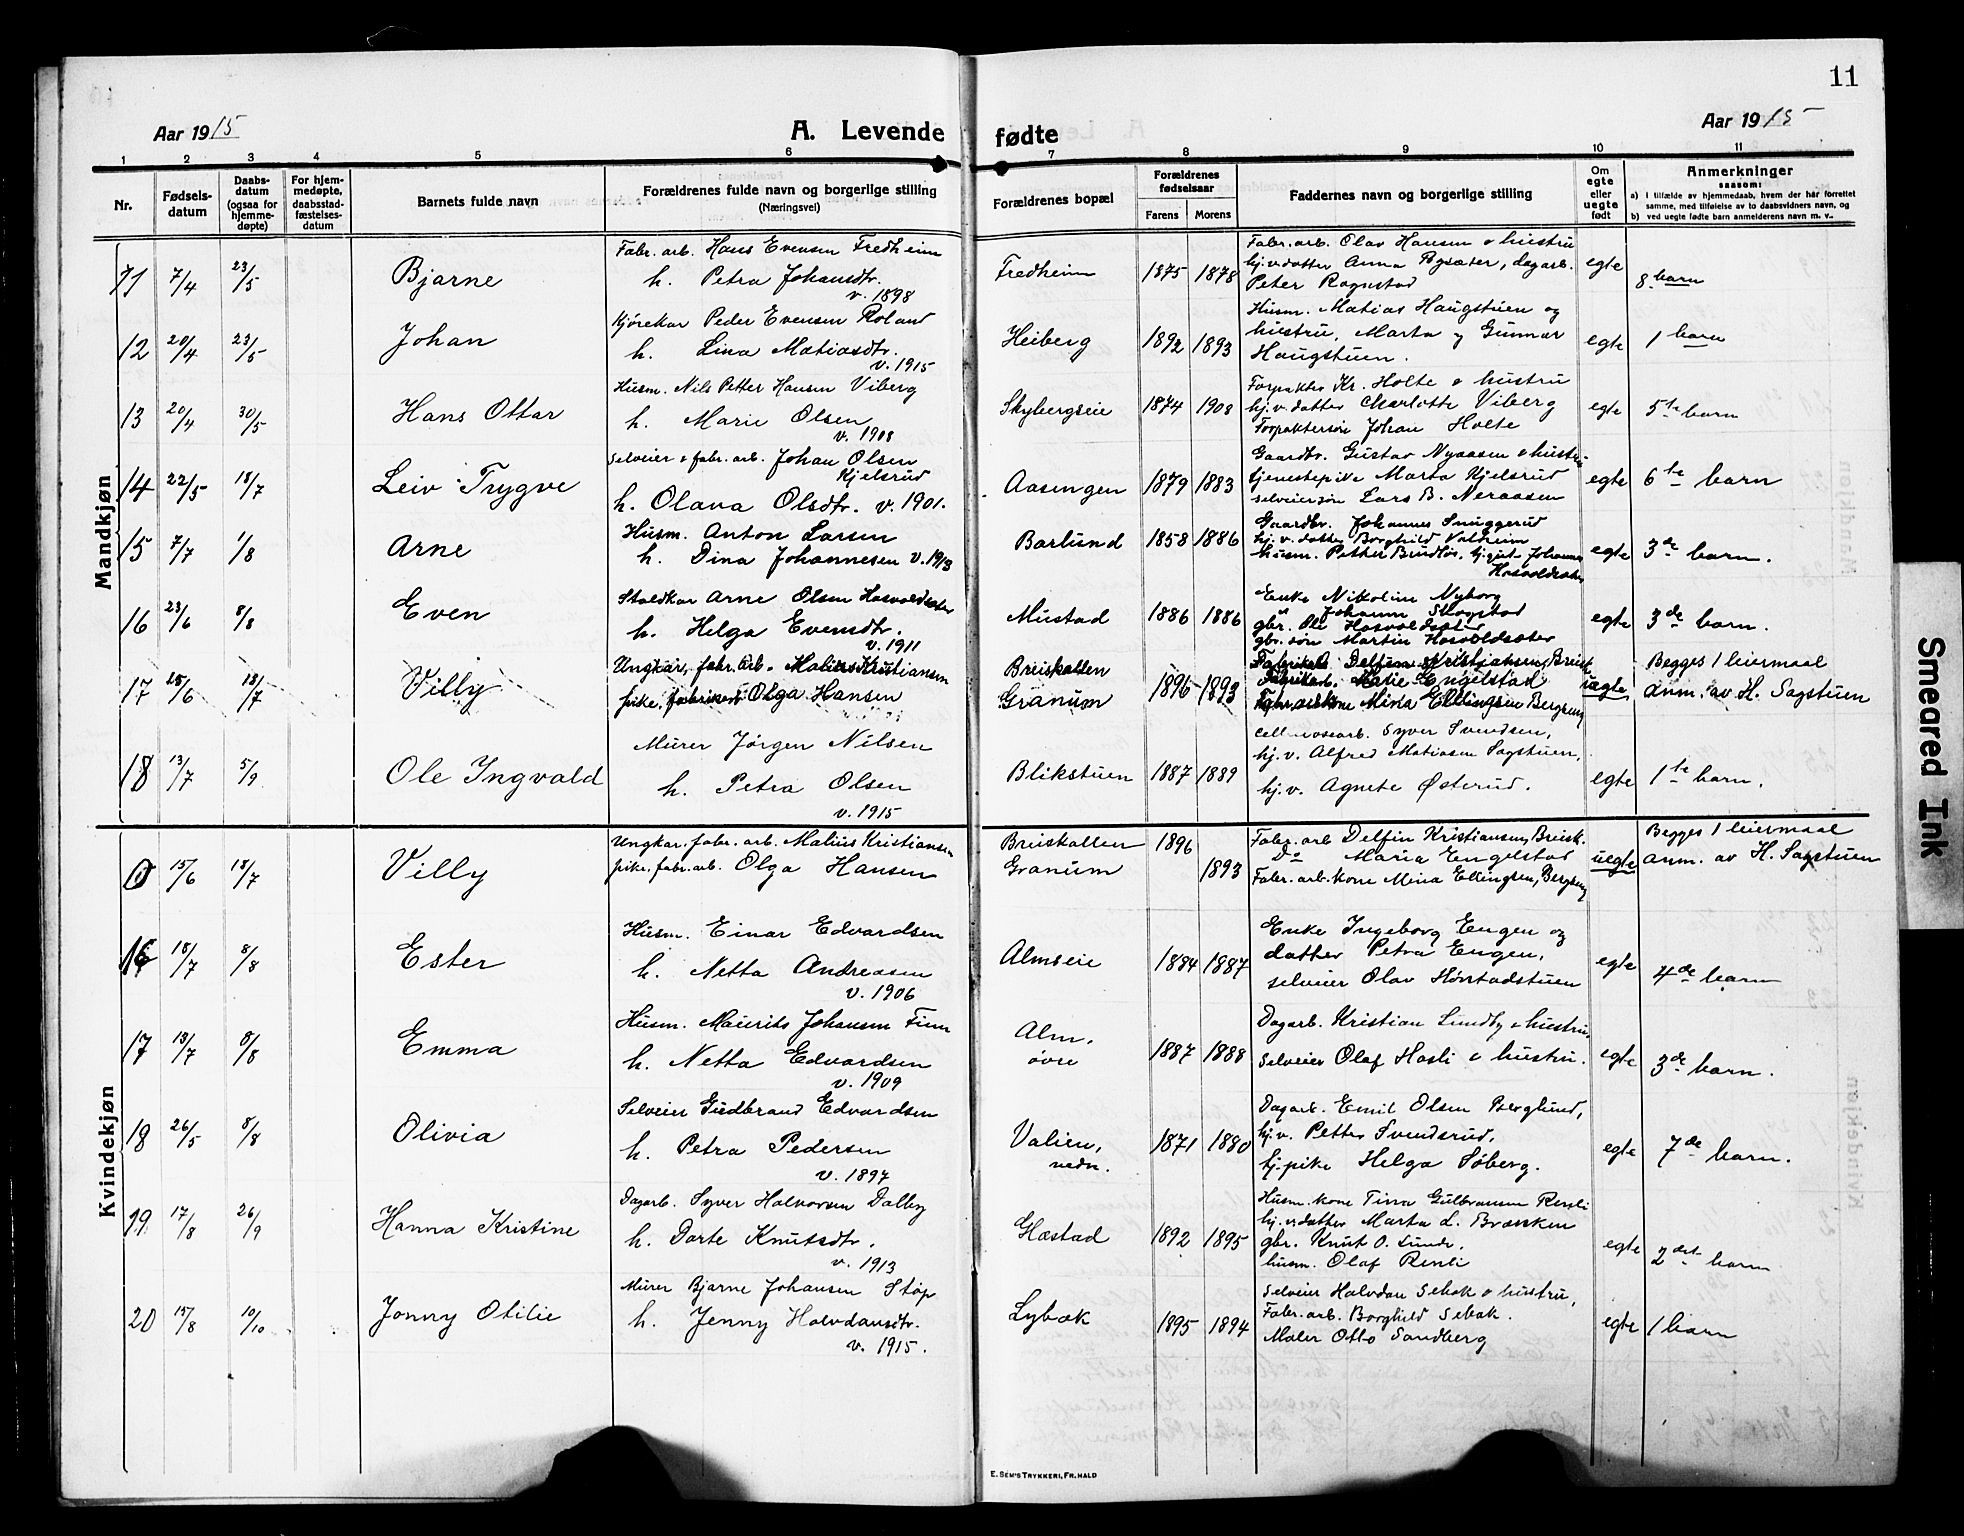 11
Aar 1915
A. Levende fødte
Aar 1915
1 2 3 4 5 6 7 8 9 10 11
Nr.
Fødsels-
datum
Daabs-
datum
(ogsaa for
hjemme-
døpte)
For hjem-
medøpte,
daabsstad-
fæstelses-
datum
Barnets fulde navn
Forældrenes fulde navn og borgerlige stilling
(Næringsvei)
Forældrenes bopæl
Forældrenes
fødselsaar
Farens Morens
Faddernes navn og borgerlige stilling
Om
egte
eller
uegte
født
Anmerkninger
saasom:
a) I tilfælde av hjemmedaab, hvem der har forrettet
samme, med tilføielse av to daabsvidners navn, og
b) ved uegte fødte barn anmelderens navn m. v..
Mandkjøn
11 7/4 23/5 Bjarne
Fabr. arb. Hans Evensen Fredheim
h. Petra Johansdtr.
v. 1898
Fredheim 1875 1878
Fabr. arb. Olav Hansen & hustru
hj.v. datter Anna Bysæter, dagarb.
Peter Rognstad
egte 8 barn
12 20/4 23/5 Johan
Kjørekar Peder Evensen Roland
h. Lina Matiasdtr.
v. 1915
Heiberg 1892 1893
Husm. Matias Haugstuen og
hustru, Marta og Gunnar
Haugstuen.
egte 1 barn
13 20/4 30/5 Hans Ottar
Husm. Nils Petter Hansen Viberg
h. Marie Olsen
v. 1908
Skybergseie 1874 1908
Forpakter Kr. Holte & hustru
hj.v. datter Charlotte Viberg
Forpaktersøn Johan Holte
egte 5te barn
14 22/5 18/7 Leiv Trygve
Selveier & fabr. arb. Johan Olsen
Kjelsrud
h. Olava Olsdtr. v. 1901.
Aasengen 1879 1883
Gaardbr. Gustav Nyaasen & hustru
tjenestepike Marta Kjelsrud
selveiersøn Lars B. Neraasen
egte 6te barn
15 7/7 1/8 Arne
Husm. Anton Larsen
h. Dina Johannesen v. 1913
Barlund 1858 1886
Gaardbr. Johannes Snuggerud
hj.v. datter Borghild Valheim
husm. Petter Brudløs, Johannes
egte 3de barn.
16 23/6 8/8 Even
Staldkar Arne Olsen Hasvoldsæter
h. Helga Evensdtr.
v. 1911
Mustad 1886 1886
Enke Nikoline Nyborg
" Johanne Skogstad
gbr. Ole Hasvoldsæter
gbr. søn Martin Hasvoldsæter
egte 3de barn.
17 15/6 18/7 Villy
Ungkar, fabr. arb. Malius Kristiansen
pike, fabrikarb. Olga Hansen
Breiskallen
Granum
1896 1893
Fabrikarb. Delfin Kristiansen, Breisk.
Fabrikarb. Marie Engelstad
Fabr. arb. kone Mina Ellingsen Bergseng
uegte
Begges 1 leiermaal
anm. av H. Sagstuen
18 13/7 5/9 Ole Ingvald
Murer Jørgen Nilsen
h. Petra Olsen
v. 1915
Blikstuen 1887 1889
Cellulosearb. Syver Svendsen,
hj. v. Alfred Matiasen Sagstuen,
hj. v. Agnete Østerud.
egte 1te barn.
Kvindekjøn
0 15/6 18/7 Villy
Ungkar, fabr. arb. Malius Kristiansen
pike, fabr. arb. Olga Hansen
Breiskallen
Granum
1896
1893
Fabr. arb Delfin Kristiansen, Breisk.
Do Maria Engelstad
Fabr. arb. kone Mina Ellingsen, Bergseng
uegte
Begges 1 leiermaal
anm. av H. Sagstuen
16 18/7 8/8 Ester
Husm. Einar Edvardsen
h. Netta Andreasen
v. 1906
Almseie 1884 1887
Enke Ingeborg Engen og
datter Petra Engen,
selveier Olav Hørstadstuen
egte 4de barn
17 13/7 8/8 Emma
Husm. Maurits Johansen Finn
h. Netta Edvardsen
v. 1909
Alm,
øvre
1887 1888
Dagarb. Kristian Lundby & hustru,
Selveier Olaf Hasli & hustru.
egte 3de barn.
18 26/5 8/8 Olivia
Selveier Gudbrand Edvardsen
h. Petra Pedersen
v. 1897
Valien,
nedn.
1871 1880
Dagarb. Emil Olsen Berglund,
hj. v. Petter Svendsrud,
hj. pike Helga Søberg.
egte 7de barn.
19 17/8 26/9 Hanna Kristine
Dagarb. Syver Halvorsen Dalby
h. Dorte Knutsdtr.
v. 1913
Gæstad 1892 1895
Husm. kone Tina Gulbransen Rensli
hj.v. datter Marta L. Brækken
gbr. Knut O. Lunde.
husm. Olaf Rensli
egte 2det barn
20 15/8 10/10 Jonny Otilie
Murer Bjarne Johansen Støp
h. Jenny Halvdansdtr.
v. 1915.
Lybæk 1895 1894
Selveier Halvdan Sebak & hustru,
Fabr. arb. Borghild Sebak.
Maler Otto Sandberg
egte 1 barn
E. SEM'S TRYKKERI, FR.HALD
Smeared Ink